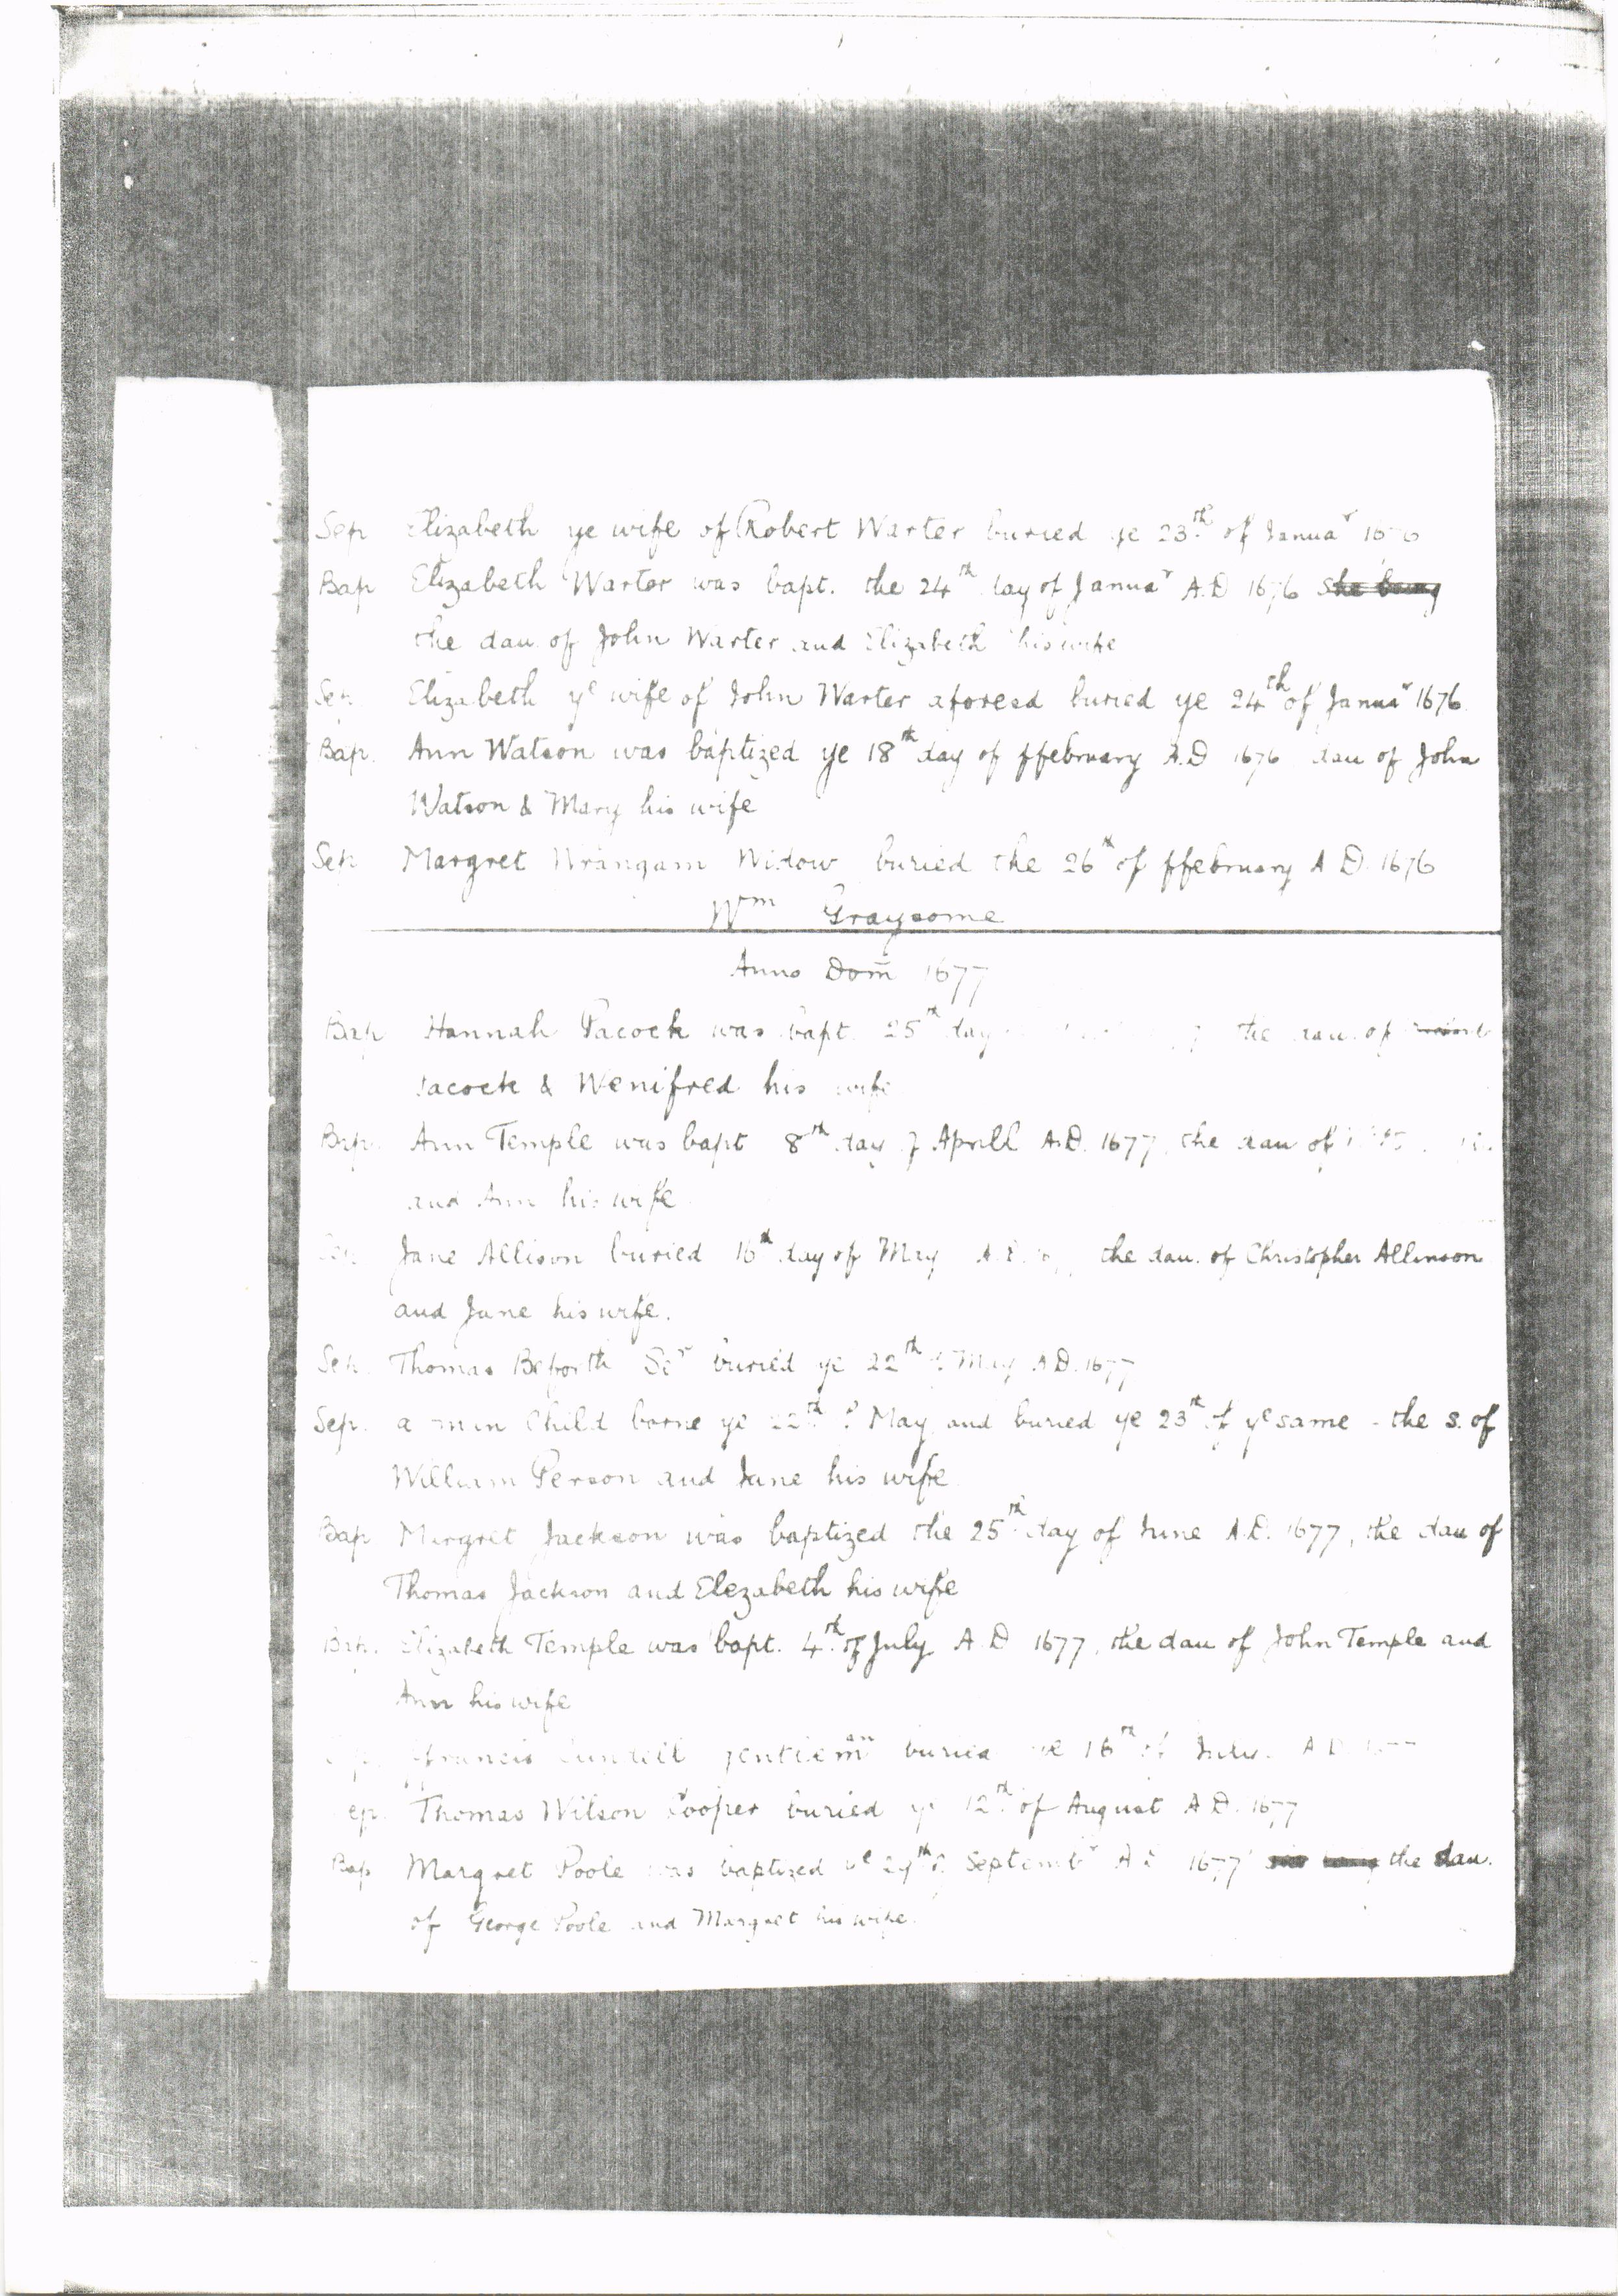 Sep Elizabeth ye wife of Robert Warter buried ye 23th of Januar 1676
Bap Elizabeth Warter was bapt. the 24th day of Januar A.D 1676 She being
the dau. of John Warter and Elizabeth his wife
Sep Elizabeth ye wife of John Warter aforesd buried ye 24th of Januar 1676
Bap. Ann Watson was baptized ye 18th day of ffebruary A.D 1676 dau of John
Watson & Mary his wife
Sep Margret Wrangam Widow buried the 26th of ffebruary A.D. 1676
Wm Graysome
Anno Dom̄ 1677
Bap Hannah Pacock was bapt. 25th day the dau. of
Pacock & Wenifred his wife
Bap. Ann Temple was bapt 8th day of Aprill A.D. 1677, the dau of
and Ann his wife
Sep. Jane Allison buried 16th day of May the dau. of Christopher Allinson
and Jane his wife.
Sep. Thomas Beforth Ser buried ye 22th of May A.D. 1677
Sep. a man Child borne ye 22th of May and buried ye 23th of ye same - the s. of
William Person and Jane his wife
Bap Margret Jackson was baptized the 25th day of June A.D. 1677, the dau of
Thomas Jackson and Elezabeth his wife
Bap. Elizabeth Temple was bapt. 4th of July A.D 1677, the dau of John Temple and
Ann his wife
ffrancis gentlem̄an buried ye 16th of A.D.
Sep. Thomas Wilson Cooper buried ye 12th of August A.D. 1677
Bap Margret Poole was baptized ye 29th of Septembr A.D 1677 she being the dau.
of George Poole and Margret his wife.